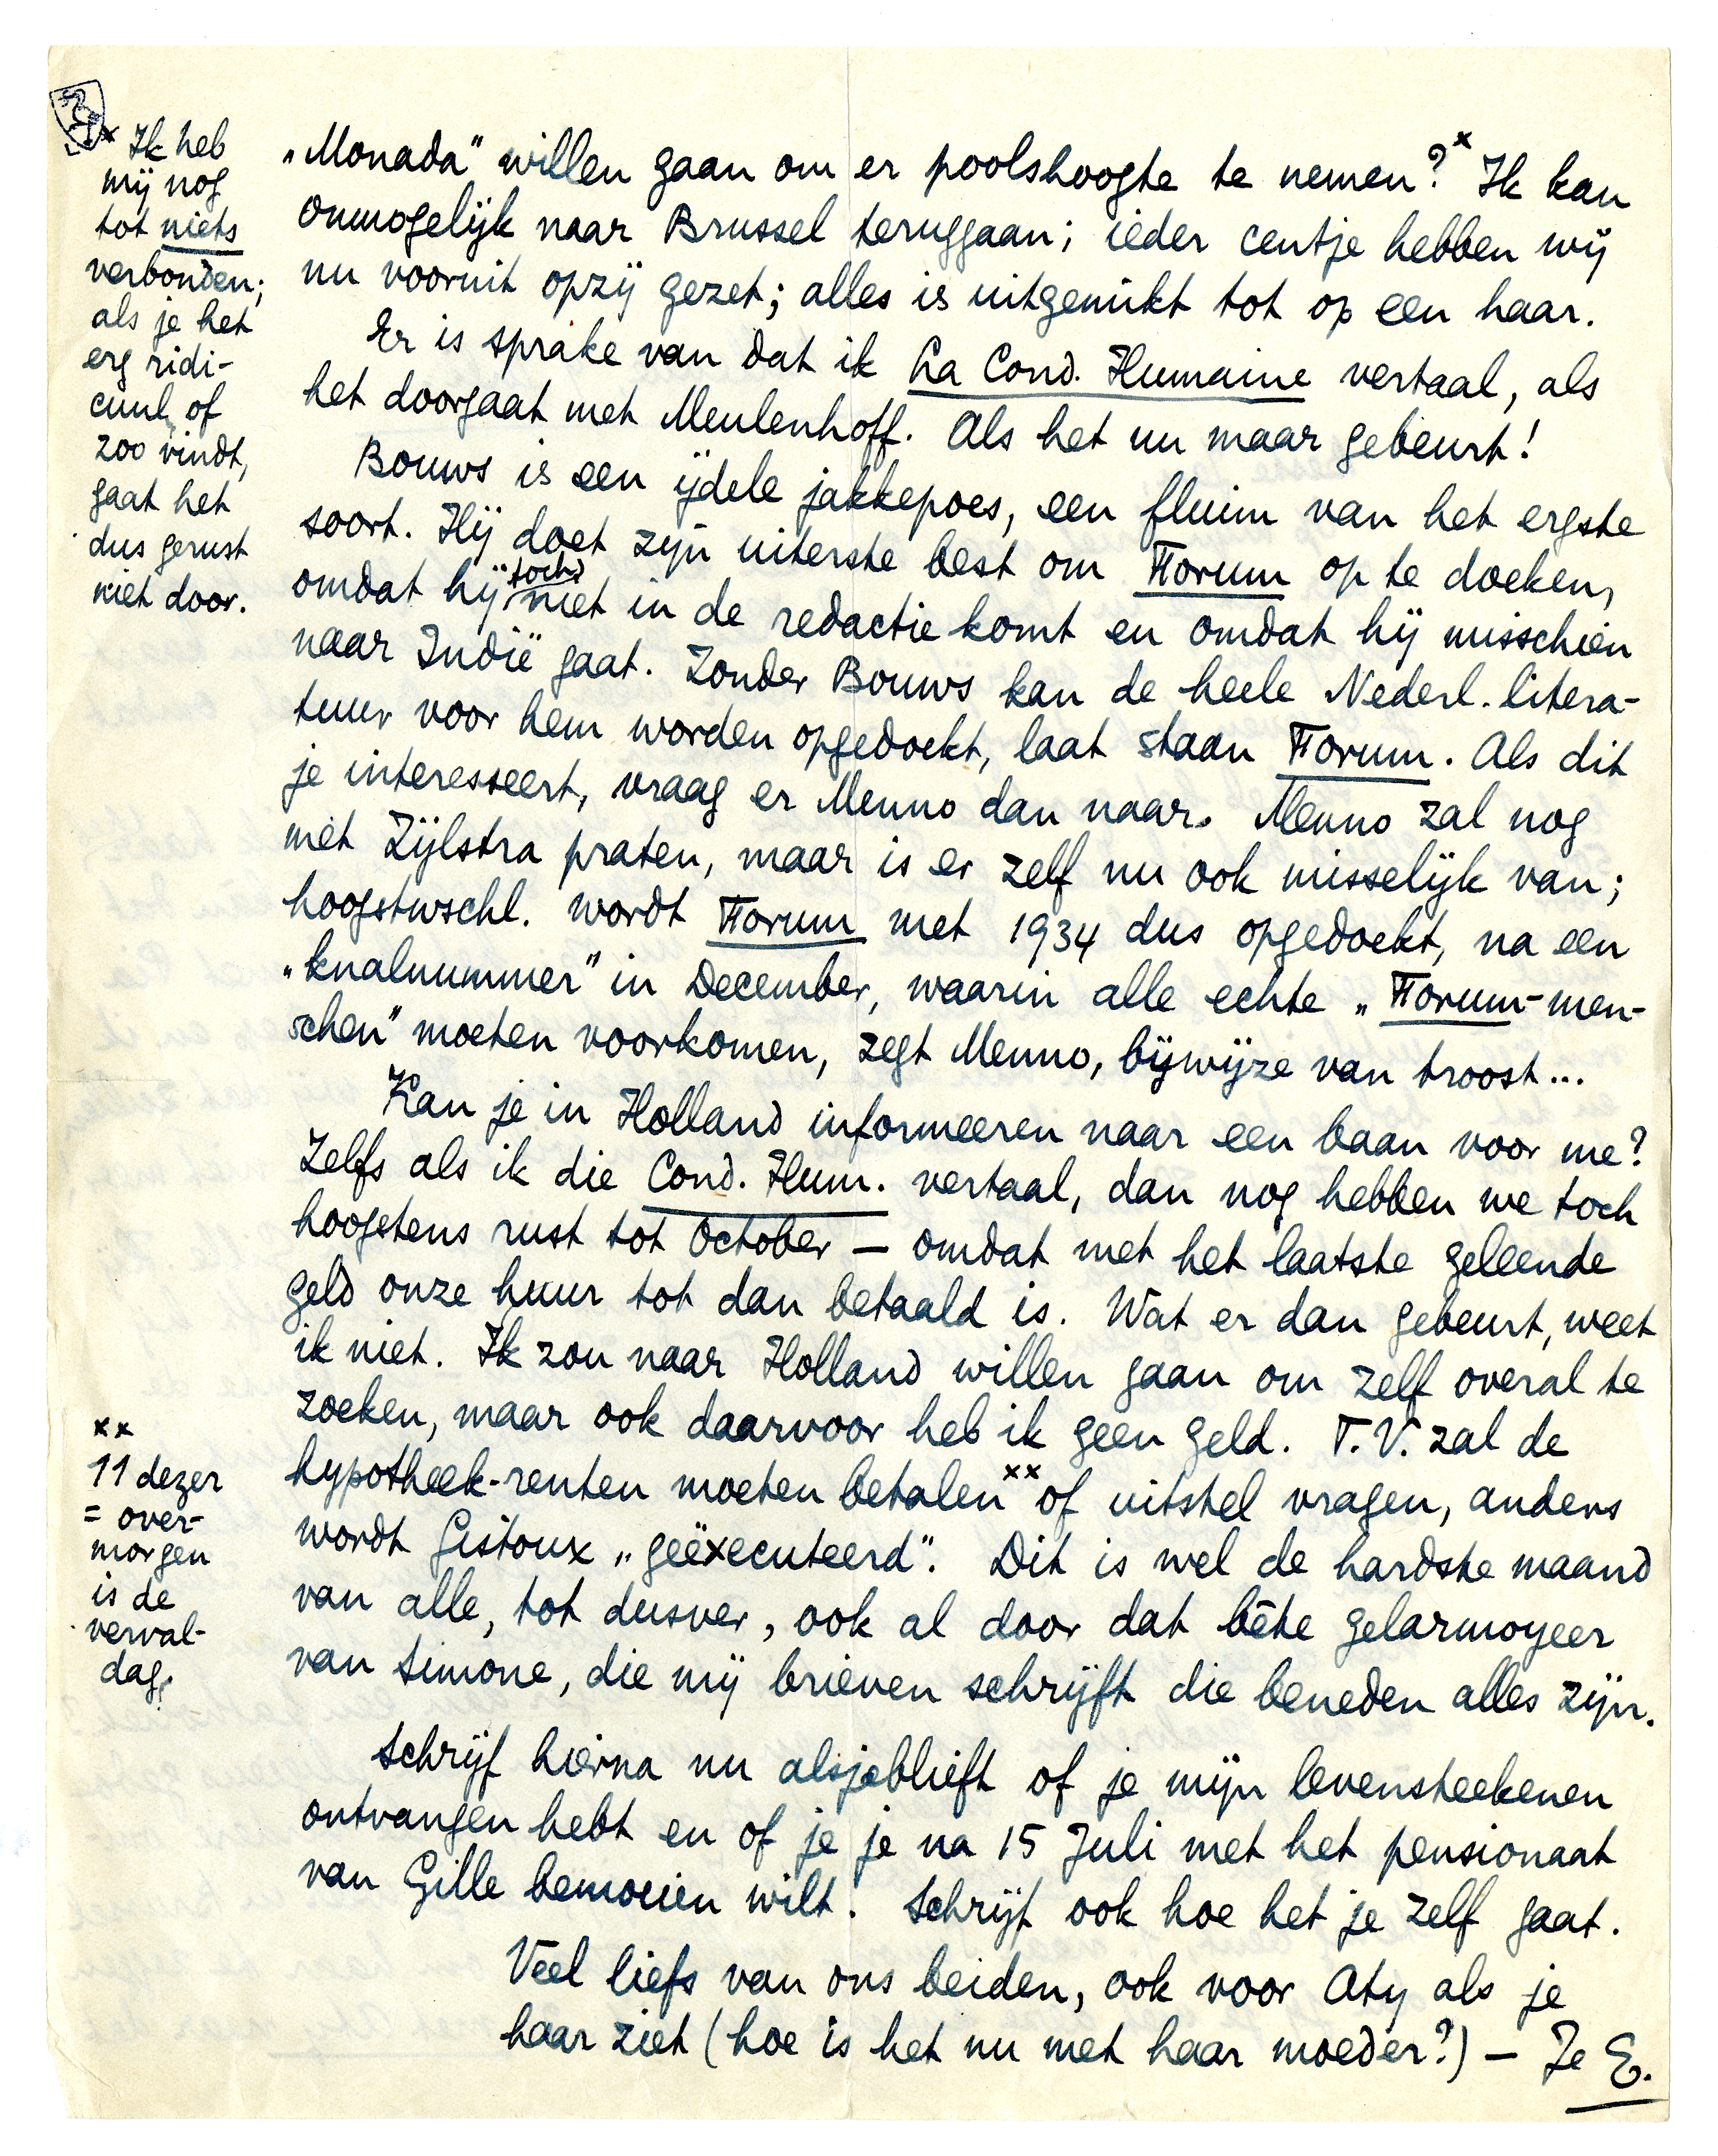 „Monada" willen gaan om er poolshoogte te nemen?ˣ Ik kan
onmogelijk naar Brussel teruggaan; ieder centje hebben wij
nu vooruit opzij gezet; alles is uitgemikt tot op een haar.
Er is sprake van dat ik La Cond. Humaine vertaal, als
het doorgaat met Meulenhoff. Als het nu maar gebeurt!
Bouws is een ijdele jakkepoes, een fluim van het ergste
soort. Hij doet zijn uiterste best om Forum op te doeken,
omdat hij toch niet in de redactie komt en omdat hij misschien
naar Indië gaat. Zonder Bouws kan de heele Nederl. litera-
tuur voor hem worden opgedoekt, laat staan Forum. Als dit
je interesseert, vraag er Menno dan naar. Menno zal nog
met Zijlstra praten, maar is er zelf nu ook misselijk van;
hoogstwschl. wordt Forum met 1934 dus opgedoekt, na een
„knalnummer" in December, waarin alle echte „Forum-men-
schen" moeten voorkomen, zegt Menno, bijwijze van troost...
Kan je in Holland informeeren naar een baan voor me?
Zelfs als ik die Cond. Hum. vertaal, dan nog hebben we toch
hoogstens rust tot October — omdat met het laatste geleende
geld onze huur tot dan betaald is. Wat er dan gebeurt, weet
ik niet. Ik zou naar Holland willen gaan om zelf overal te
zoeken, maar ook daarvoor heb ik geen geld. T.V. zal de
hypotheek-renten moeten betalenˣˣ of uitstel vragen, anders
wordt Gistoux „geëxecuteerd". Dit is wel de hardste maand
van alle, tot dusver, ook al door dat bête gelarmoyeer
van Simone, die mij brieven schrijft die beneden alles zijn.
Schrijf hierna nu alsjeblieft of je mijn levensteekenen
ontvangen hebt en of je je na 15 Juli met het pensionaat
van Gille bemoeien wilt. Schrijf ook hoe het je zelf gaat.
Veel liefs van ons beiden, ook voor Aty als je
haar ziet (hoe is het nu met haar moeder?) — Je E.
x Ik heb
mij nog
tot niets
verbonden;
als je het
erg ridi-
cuul of
zoo vindt,
gaat het
dus gerust
niet door.
xx
11 dezer
= over-
morgen
is de
verval-
dag.